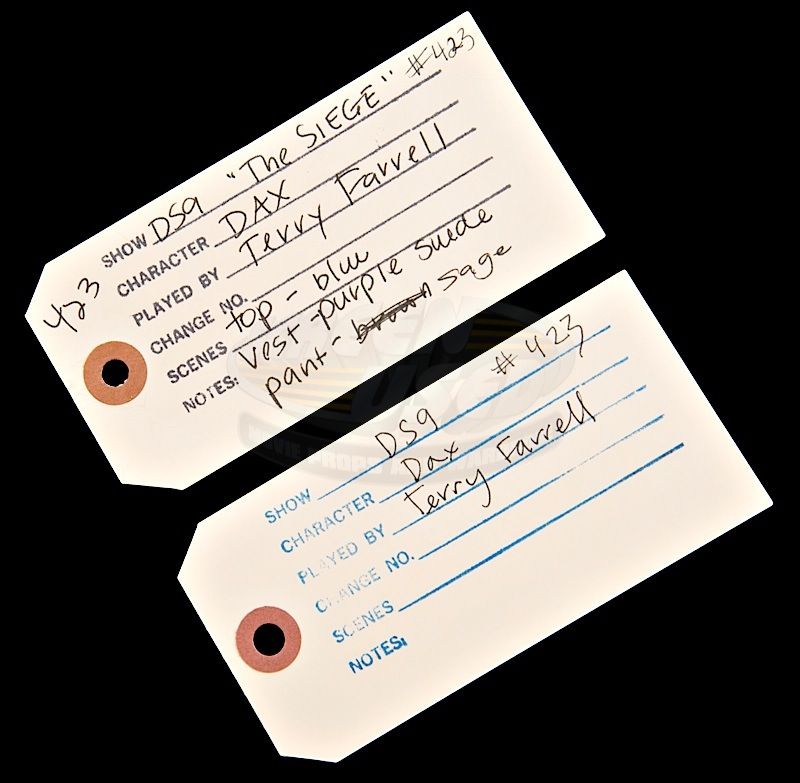 423
SHOW DS9 "The SIEGE" #423
CHARACTER DAX
PLAYED BY Terry Farrell
CHANGE NO.
SCENES top - blue
NOTES: vest - purple suede
pant - brown sage
SHOW DS9 #423
CHARACTER Dax
PLAYED BY Terry Farrell
CHANGE NO.
SCENES
NOTES: